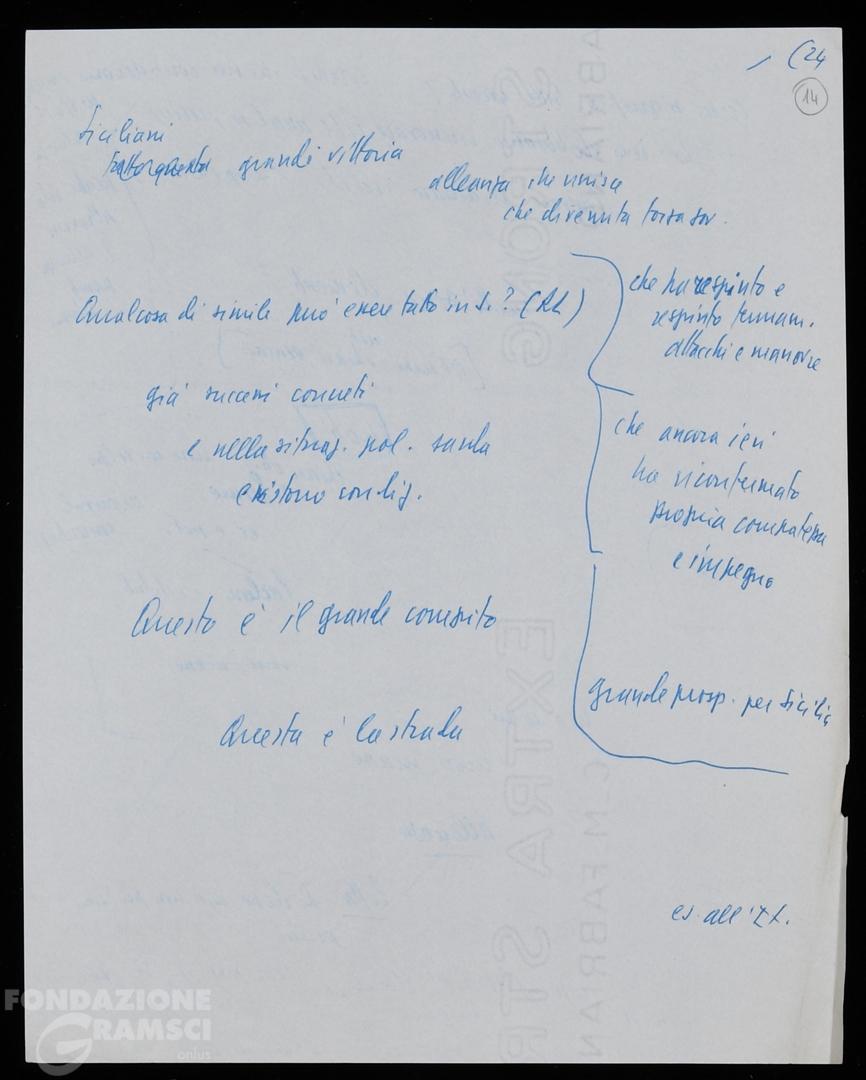 (24
14
Siciliani
grande vittoria
alleanza che unisce
che divenuta forza gov.
Qualcosa di simile può essere fatto in S.? (RL)
che ha respinto e
respinto tennam.
attacchi e manovre
già successi concreti
e nella situaz. pol. sarda
esistono condiz.
che ancora ieri
ha riconfermato
propria compattezza
e impegno
Questo è il grande compito
grande prosp. per Sicilia
Questa è la strada
es. all'
FONDAZIONE
GRAMSCI
onlus
EXTRA STR
C.M. FABRIAN